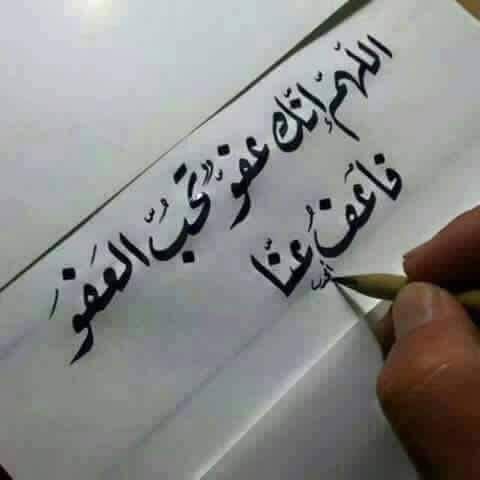 اللّهمّ إنّك عفوٌّ تحبُّ العَفوَ
فاَعفُ عنّا